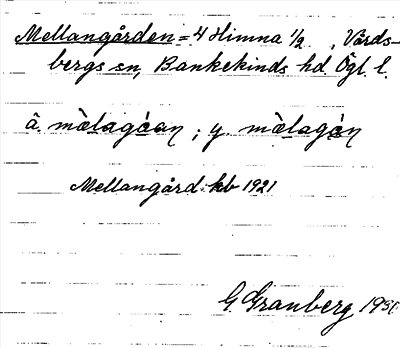 Mellangården = 4 Himna 1/2, Vårds-
bergs sn, Bankekinds hd. Ögl. l.
ä. mälagóan; y. mälagɔ́n
Mellangård kb 1921
G. Granberg